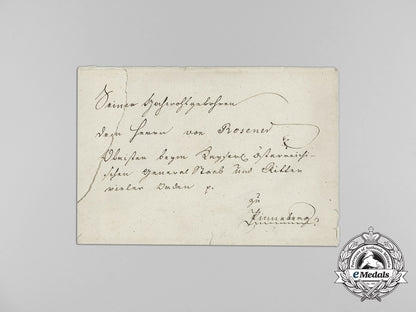 Seiner Hochwohlgebohren
dem Herrn von Rosener
Obristen beym Kayserl österreichi-
schen General Staab und Ritter
vieler Orden p.
zu
Pinneberg.
eMedals